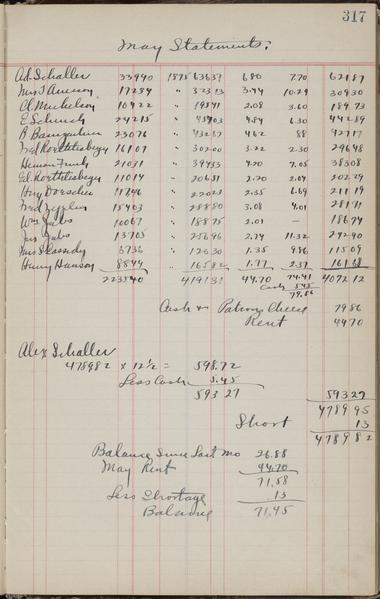 317
May Statements:
Ad. Schaller 33940 1875 63637 6.80 7.70 62187
17284 " 32313 3.44 10.29 30930
Cl Mickelson 10422 " 19541 2.08 3.60 18973
E Schuch 24215 " 45403 4.84 6.30 44289
B Baumgartner 23076 " 43267 4.62 88 42717
16107 " 30200 3.22 2.30 29648
Herman Funk 21031 " 39433 4.20 7.05 38308
11014 " 20651 2.20 2.04
11746 " 22023 2.35 6.69 21119
Fred Zepplin 15403 " 28880 3.08 4.01
Wm Jabs 10067 " 18875 2.01 — 18674
Jno Jabs 13705 " 25696 2.74 11.32 24290
Cassidy 6736 " 12630 1.35 9.86 11509
Henry Hanson 8844 " 16582 1.77 2.37 16168
223540 419131 44.70 74.41 407212
Cash 5.45
79.86
Cash & Patrons Cheese 7986
Rent 4470
Alex Schaller
478982 x 12½ = 598.72
Less Cash 5.45
593 27 59327
478995
Short 13
478982
Balance Since Last Mo 26.88
May Rent 44.70
71.58
Less Shortage .13
Balance 71.45